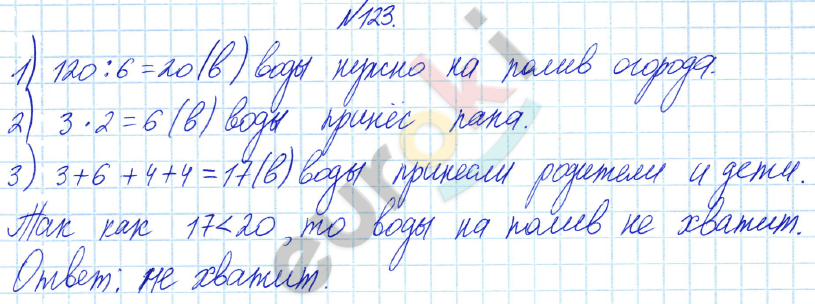 №123.
1) 120:6=20(в) воды нужно на полив огорода.
2) 3·2=6(в) воды принёс папа.
3) 3+6+4+4=17(в) воды принесли родители и дети.
Так как 17<20, то воды на полив не хватит.
Ответ: не хватит.
euroki